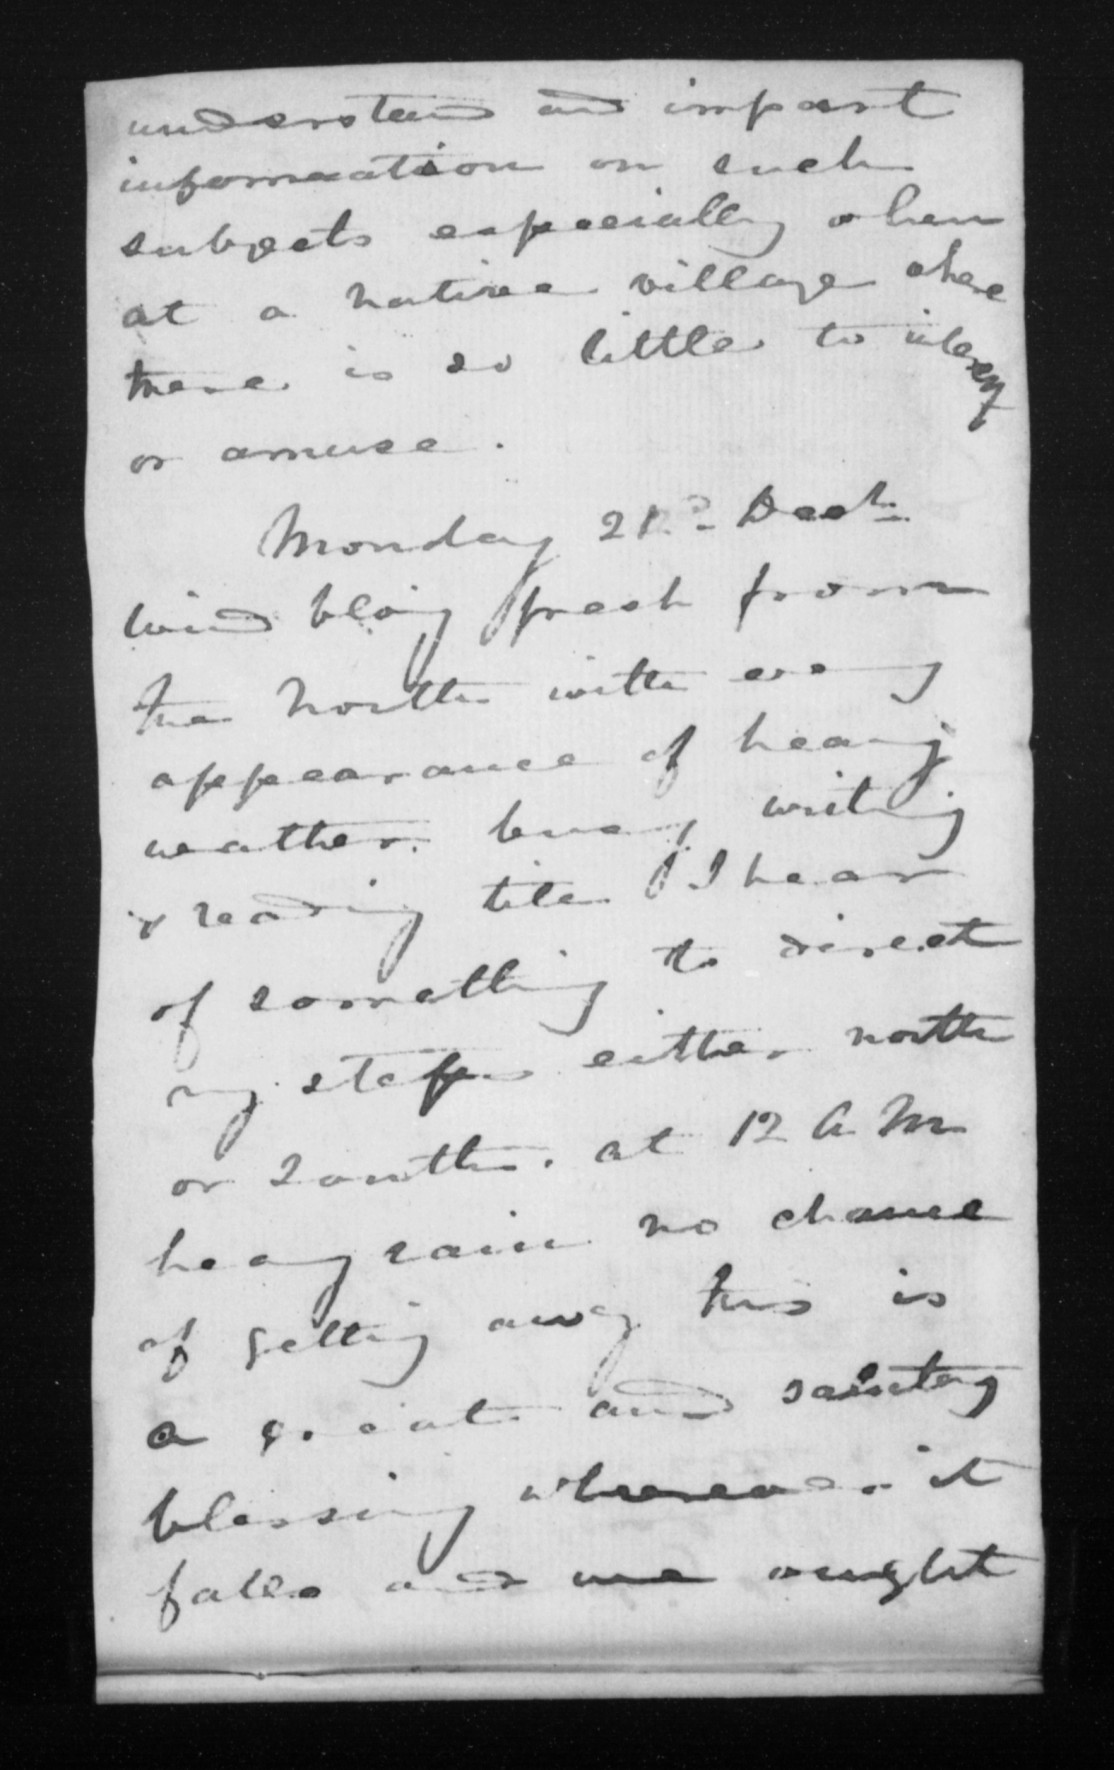 understand and impart
information on such
subjects especially when
at a native village where
there is so little to
or amuse.
Monday 21st Decbr
wind bloing fresh from
the North with every
appearance of heavy
weather. busy writing
& reading till I hear
of something to direct
my steps either north
or South. at 12 A M
heavy rain no chance
of getting away this is
a great and
blessing wherever it
falls and we ought